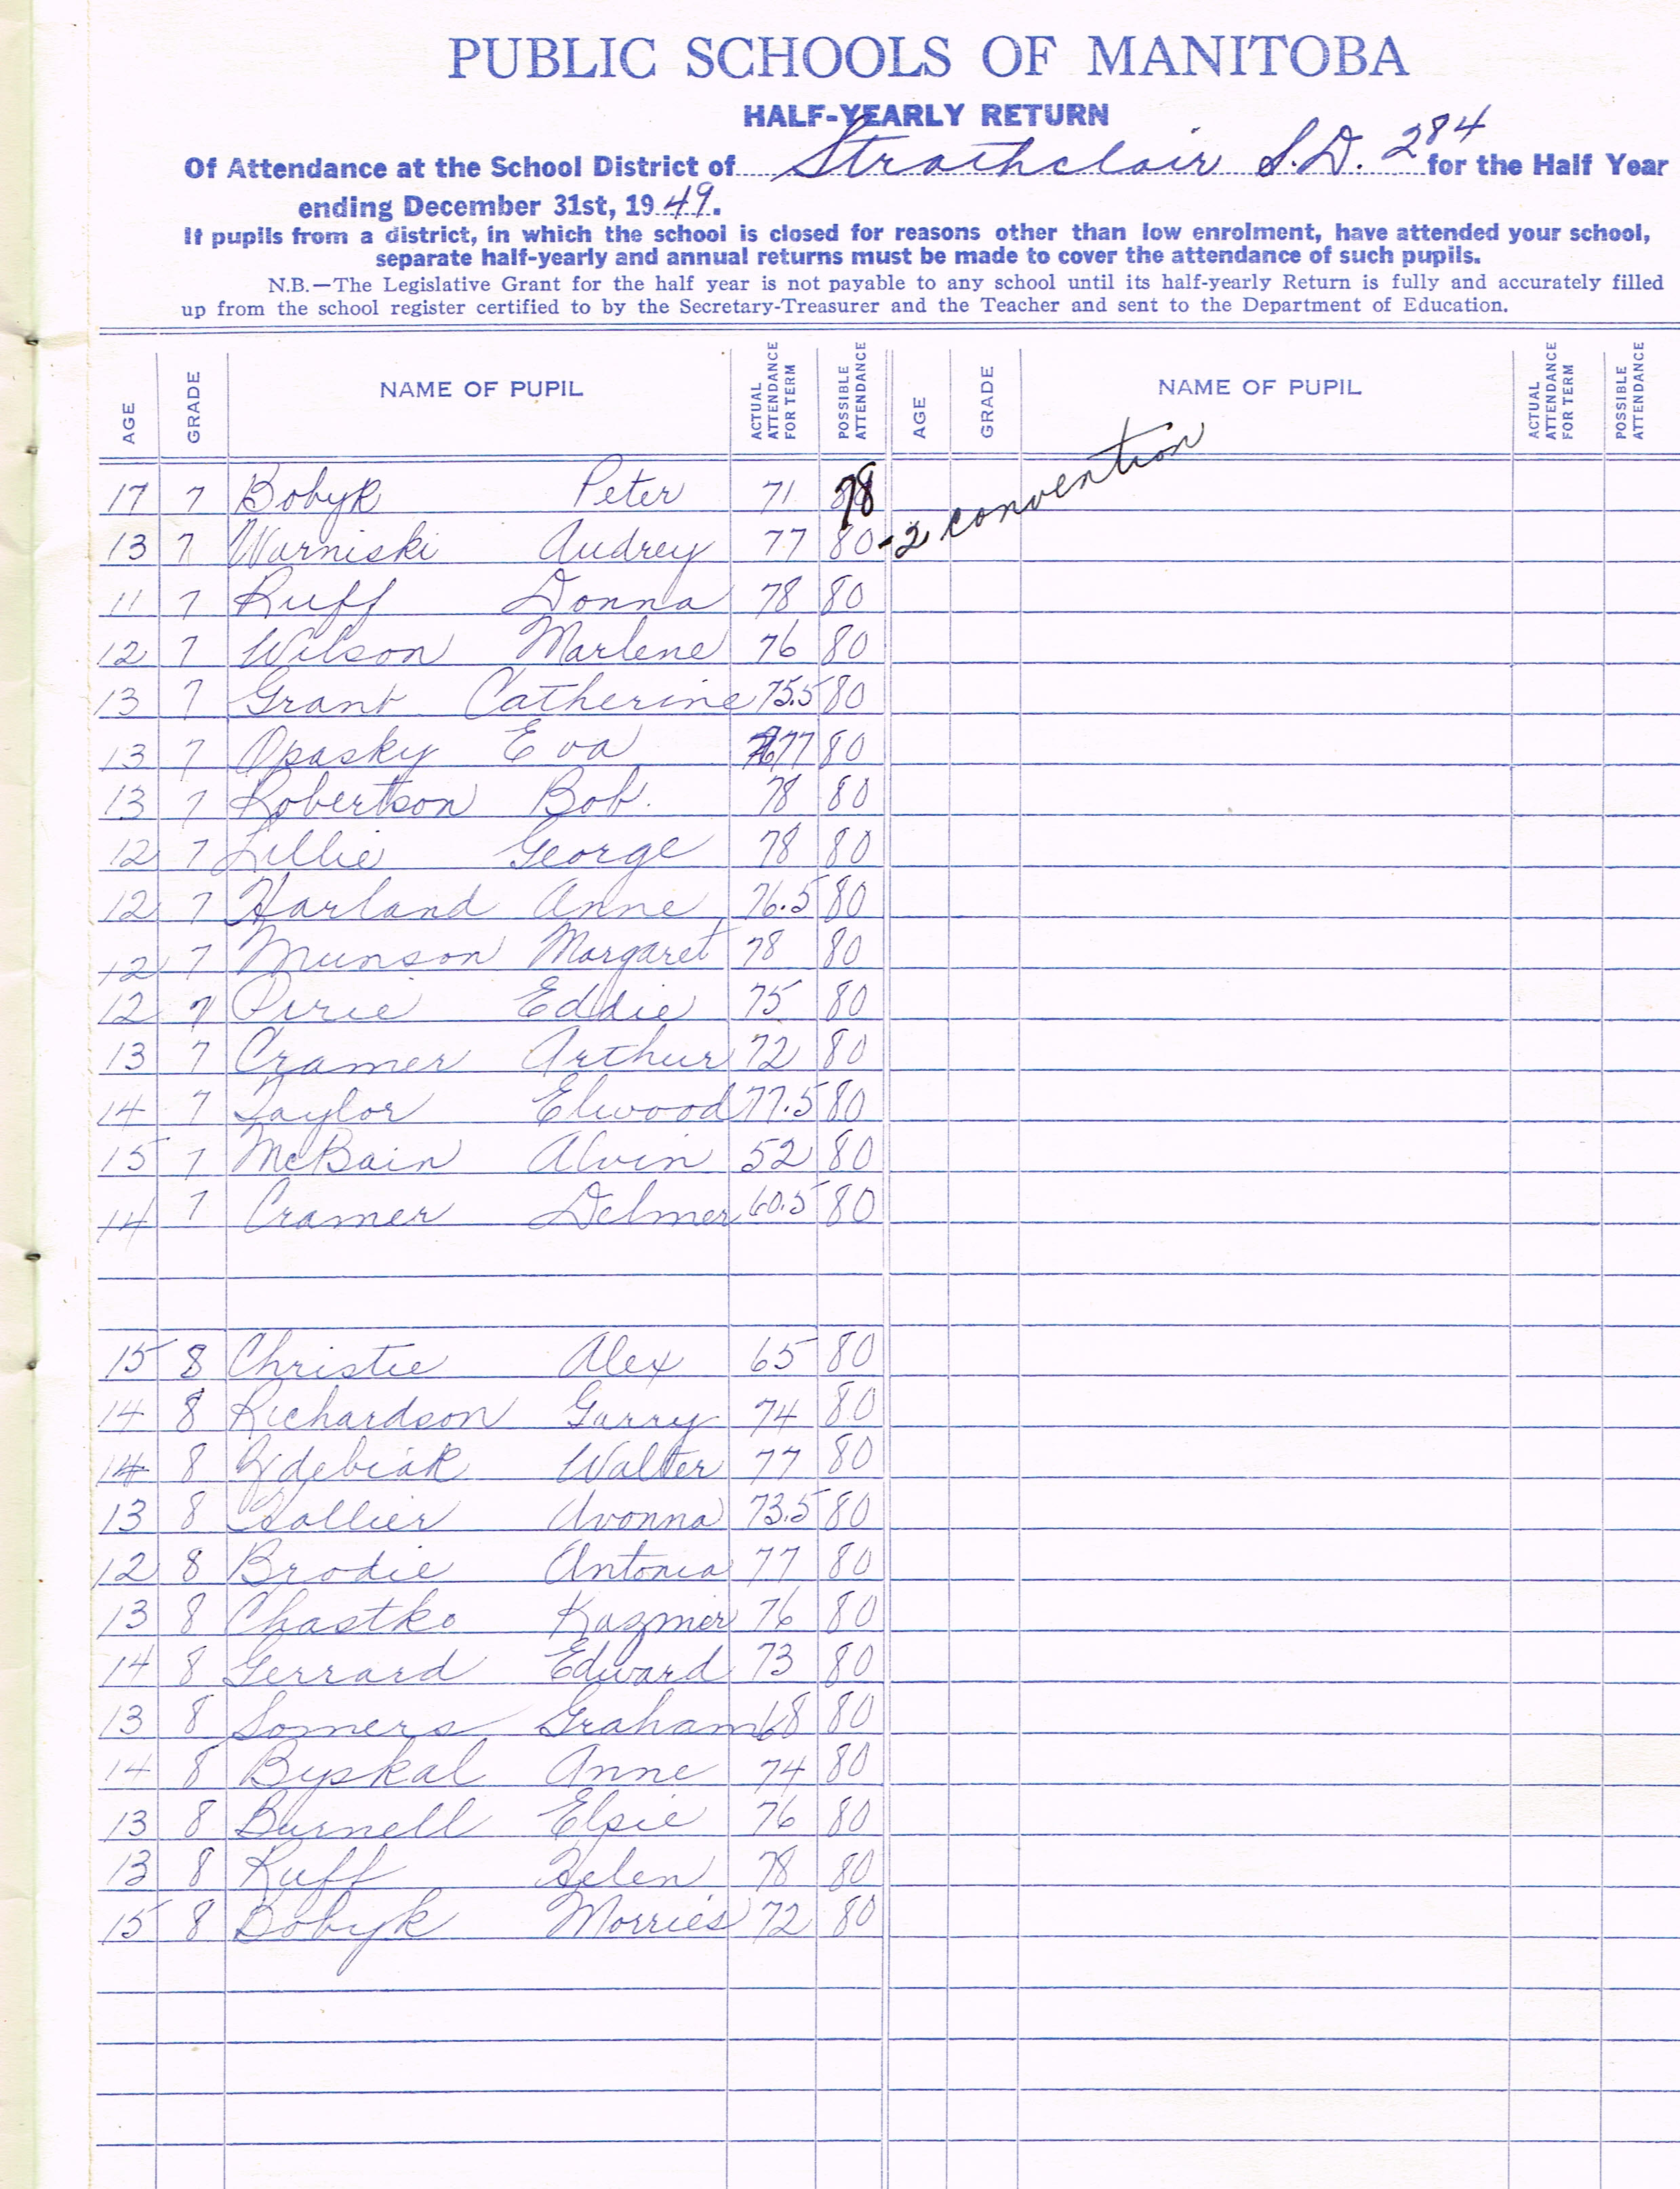 PUBLIC SCHOOLS OF MANITOBA
HALF-YEARLY RETURN
Of Attendance at the School District of Strathclair S.D. 284 for the Half Year
ending December 31st, 1949.
If pupils from a district, in which the school is closed for reasons other than low enrolment, have attended your school,
separate half-yearly and annual returns must be made to cover the attendance of such pupils.
N.B.—The Legislative Grant for the half year is not payable to any school until its half-yearly Return is fully and accurately filled
up from the school register certified to by the Secretary-Treasurer and the Teacher and sent to the Department of Education.
AGE GRADE NAME OF PUPIL ACTUAL ATTENDANCE FOR TERM POSSIBLE ATTENDANCE AGE GRADE NAME OF PUPIL ACTUAL ATTENDANCE FOR TERM POSSIBLE ATTENDANCE
17 7 Bobyk Peter 71 78
13 7 Warniski Audrey 77 80 -2 convention
11 7 Ruff Donna 78 80
12 7 Wilson Marlene 76 80
13 7 Grant Catherine 75.5 80
13 7 Opasky Eva 77 80
13 7 Robertson Bob. 78 80
12 7 Lillie George 78 80
12 7 Harland Anne 76.5 80
12 7 Munson Margaret 78 80
12 7 Pirie Eddie 75 80
13 7 Cramer Arthur 72 80
14 7 Taylor Elwood 77.5 80
15 7 McBain Alvin 52 80
14 7 Cramer Delmer 60.5 80
15 8 Christie Alex 65 80
14 8 Richardson Garry 74 80
14 8 Walter 77 80
13 8 Gollier Avonna 73.5 80
12 8 Brodie Antonia 77 80
13 8 Chastko Kazmer 76 80
14 8 Gerrard Edward 73 80
13 8 Somers Graham 68 80
14 8 Byskal Anne 74 80
13 8 Burnell Elsie 76 80
13 8 Ruff Helen 78 80
15 8 Bobyk Morries 72 80